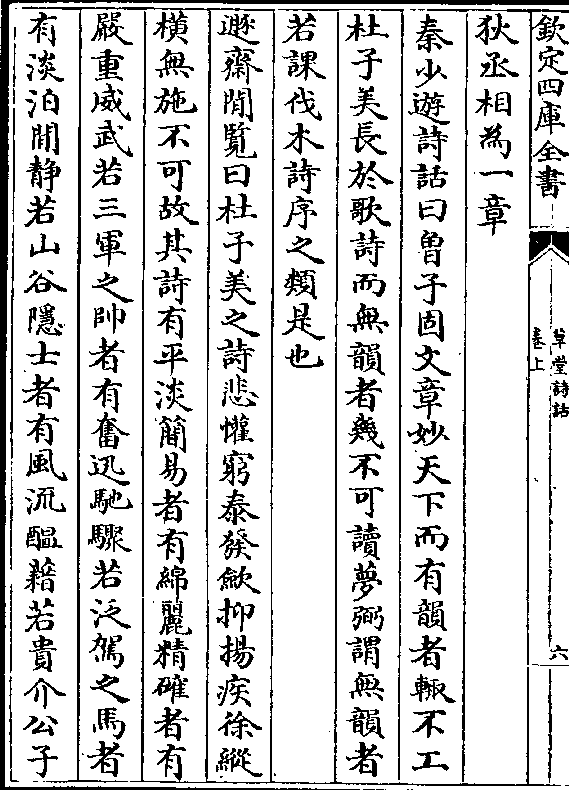 欽定四庫全書
草堂詩話
卷上
六
狄丞相為一章
秦少遊詩話曰曾子固文章妙天下而有韻者輒不工
杜子美長於歌詩而無韻者幾不可讀夢弼謂無韻者
若課伐木詩序之類是也
遯齋閒覽曰杜子美之詩悲懽窮泰發斂抑揚疾徐縱
橫無施不可故其詩有平淡簡易者有綿麗精確者有
嚴重威武若三軍之帥者有奮迅馳驟若泛駕之馬者
有淡泊閒静若山谷隱士者有風流醖藉若貴介公子